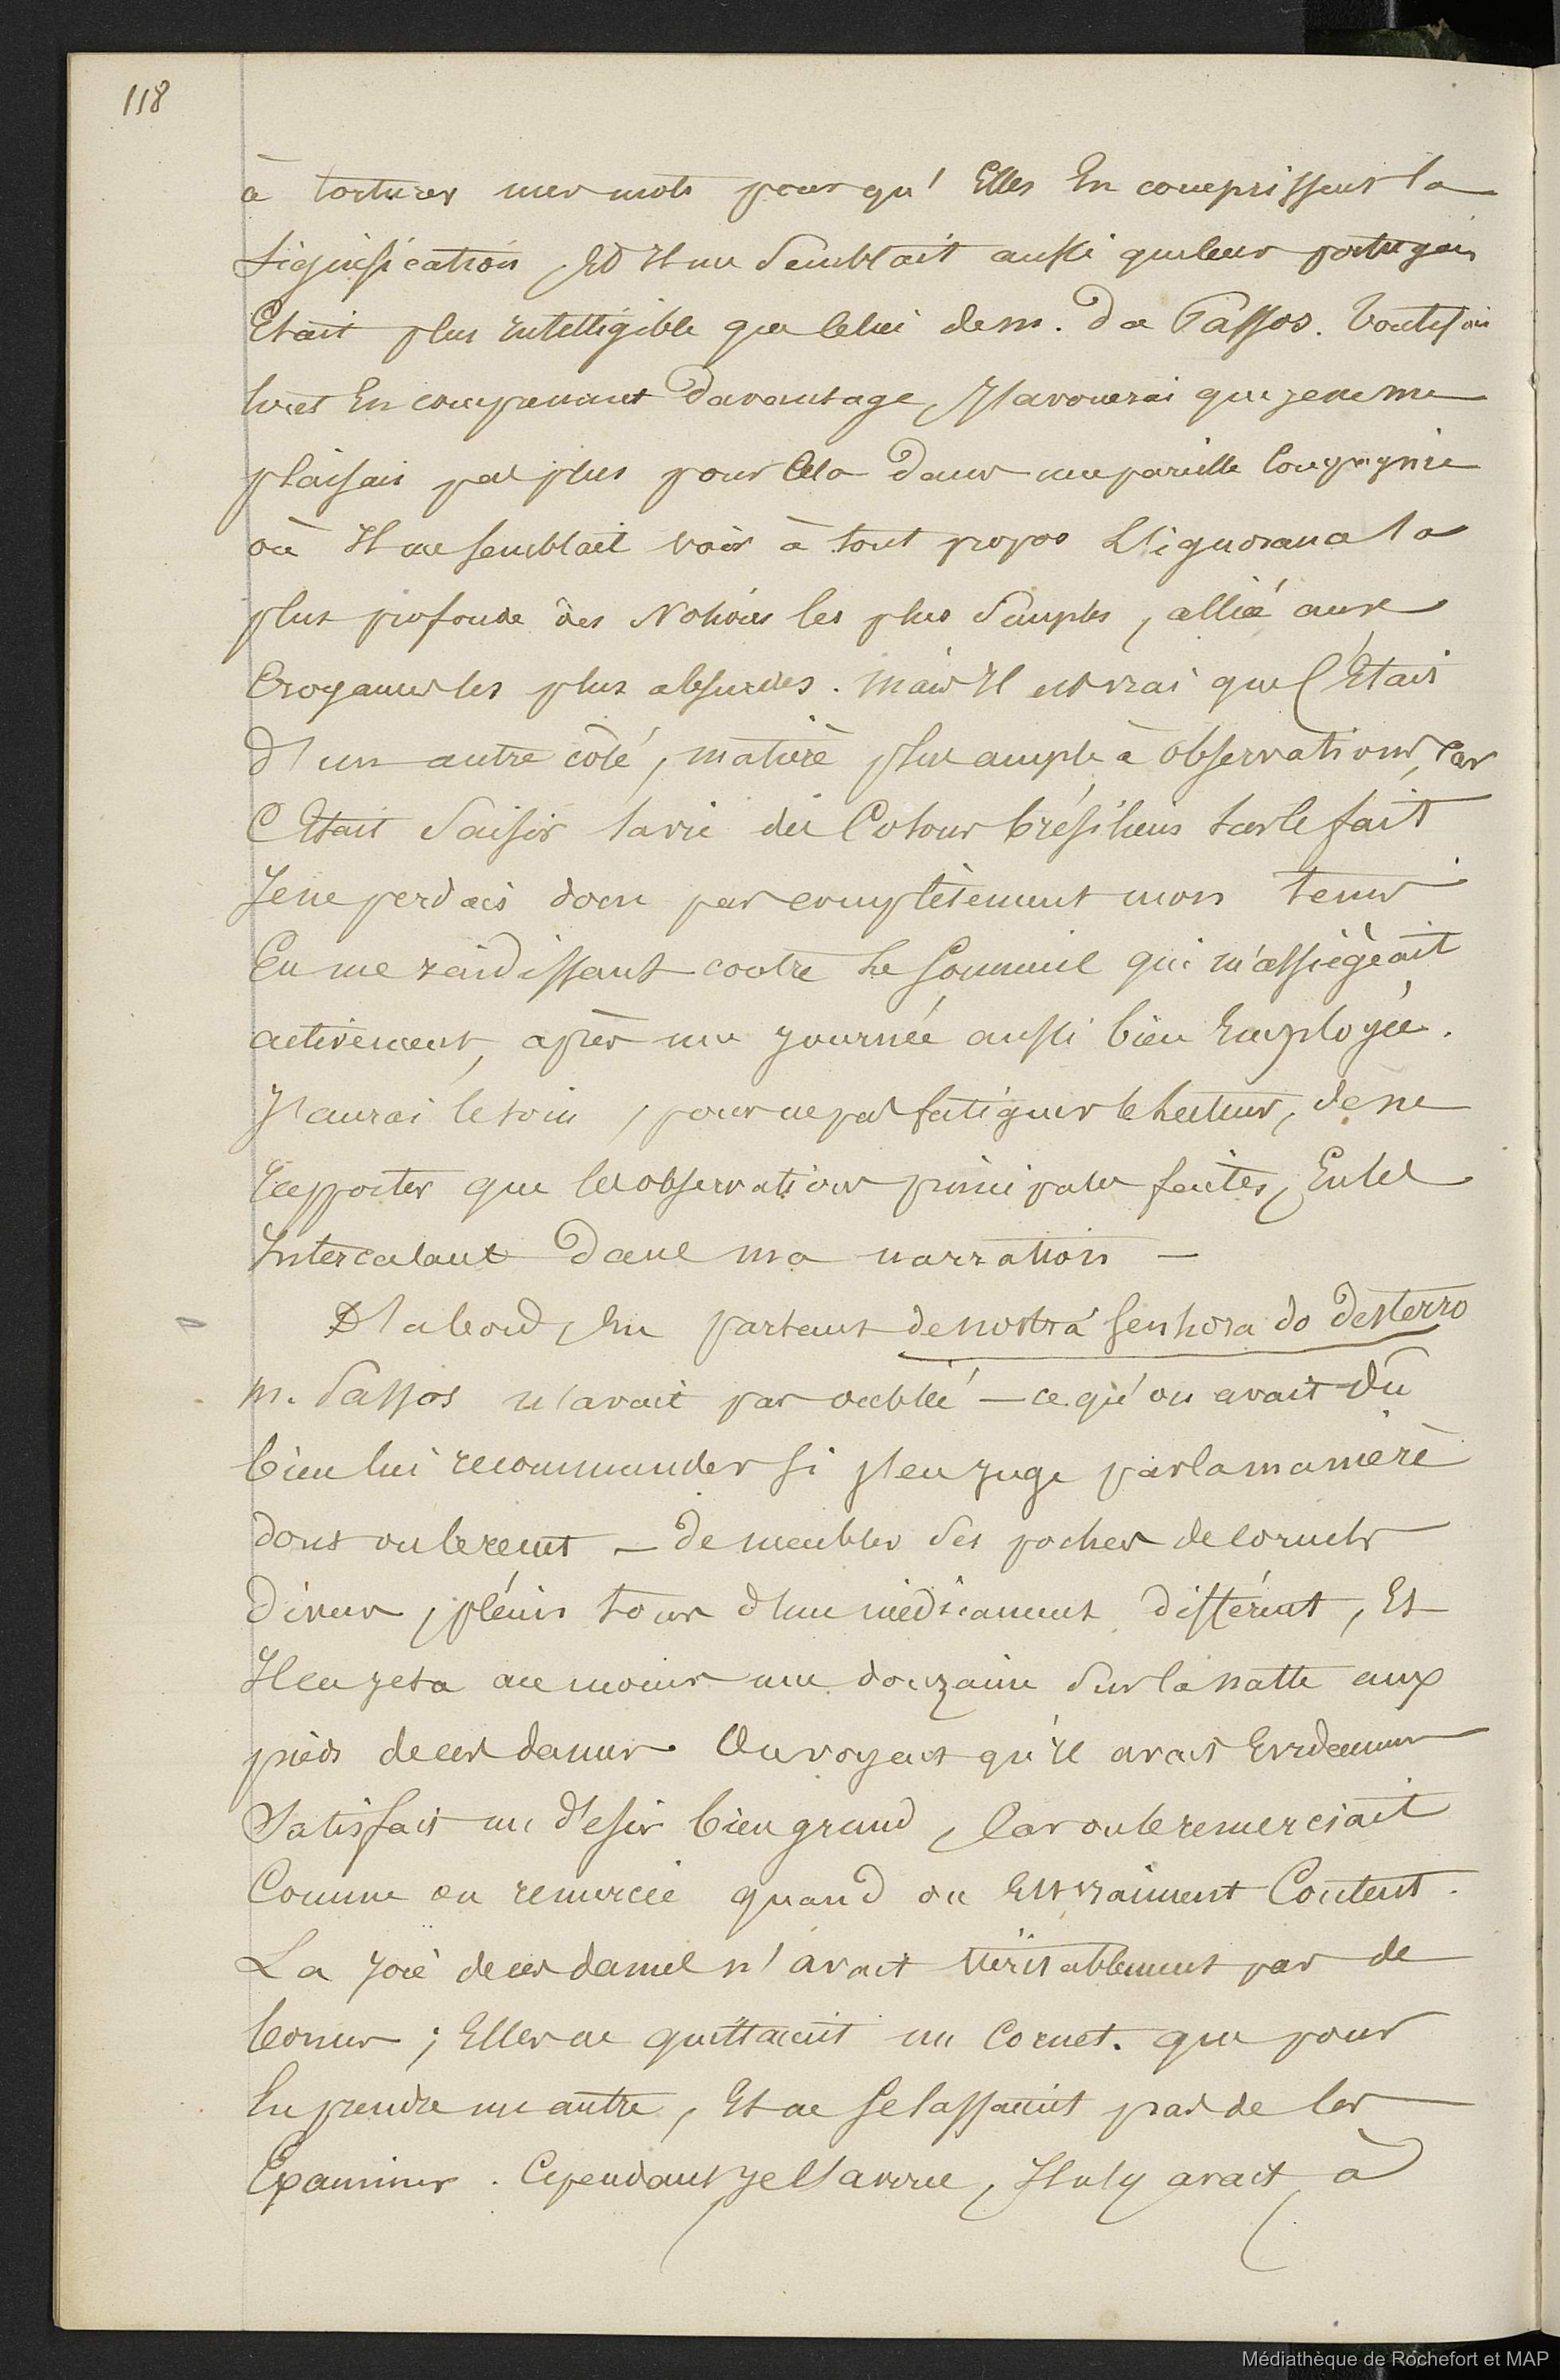 118
à torturer mes mots pour qu'Elles En comprissent la
signification, Et Il me Semblait aussi que leur portugais
Etait plus intelligible que celui de m. Da Passos. Toutefois
tout En comprenant Davantage, J'avouerai que je ne me
plaisais pas plus pour Cela Dans une pareille Compagnie
où Il me semblait voir à tout propos L'ignorance la
plus profonde des Notions les plus Simples, alliée aux
Croyances les plus absurdes. mais Il est vrai que C'Etait
D'un autre côté, matière plus ample à Observations, Car
C'Etait Saisir la vie des Colons brésiliens sur le fait
Je ne perdais donc pas complètement mon tems
En me raidissant contre Le Sommeil qui m'assiègeait
activement, après une journée aussi bien Employée.
J'aurai le soin, pour ne pas fatiguer le Lecteur, de ne
rapporter que les observations principales faites, En les
Intercalant Dans ma narration —
D'abord, En partant de nostra Senhora do Desterro
m. Passos n'avait pas oublié — ce qu'on avait Dû
bien lui recommander si j'en juge par la manière
dont on le reçut — De meubler Ses poches de cornets
Divers, pleins tous d'un médicament différent, Et
Il en jeta au moins une douzaine Sur la natte aux
pieds de ces dames. On voyait qu'Il avait Evidemment
Satisfait un désir bien grand, Car on le remerciait
Comme on remercie quand on Est vraiment Content.
La joie de ces dames n'avait véritablement pas de
bornes; Elles ne quittaient un Cornet. que pour
En prendre un autre, Et ne se lassaient pas de les
Examiner. Cependant je l'avoue, Il n'y avait à
Médiathèque de Rochefort et MAP